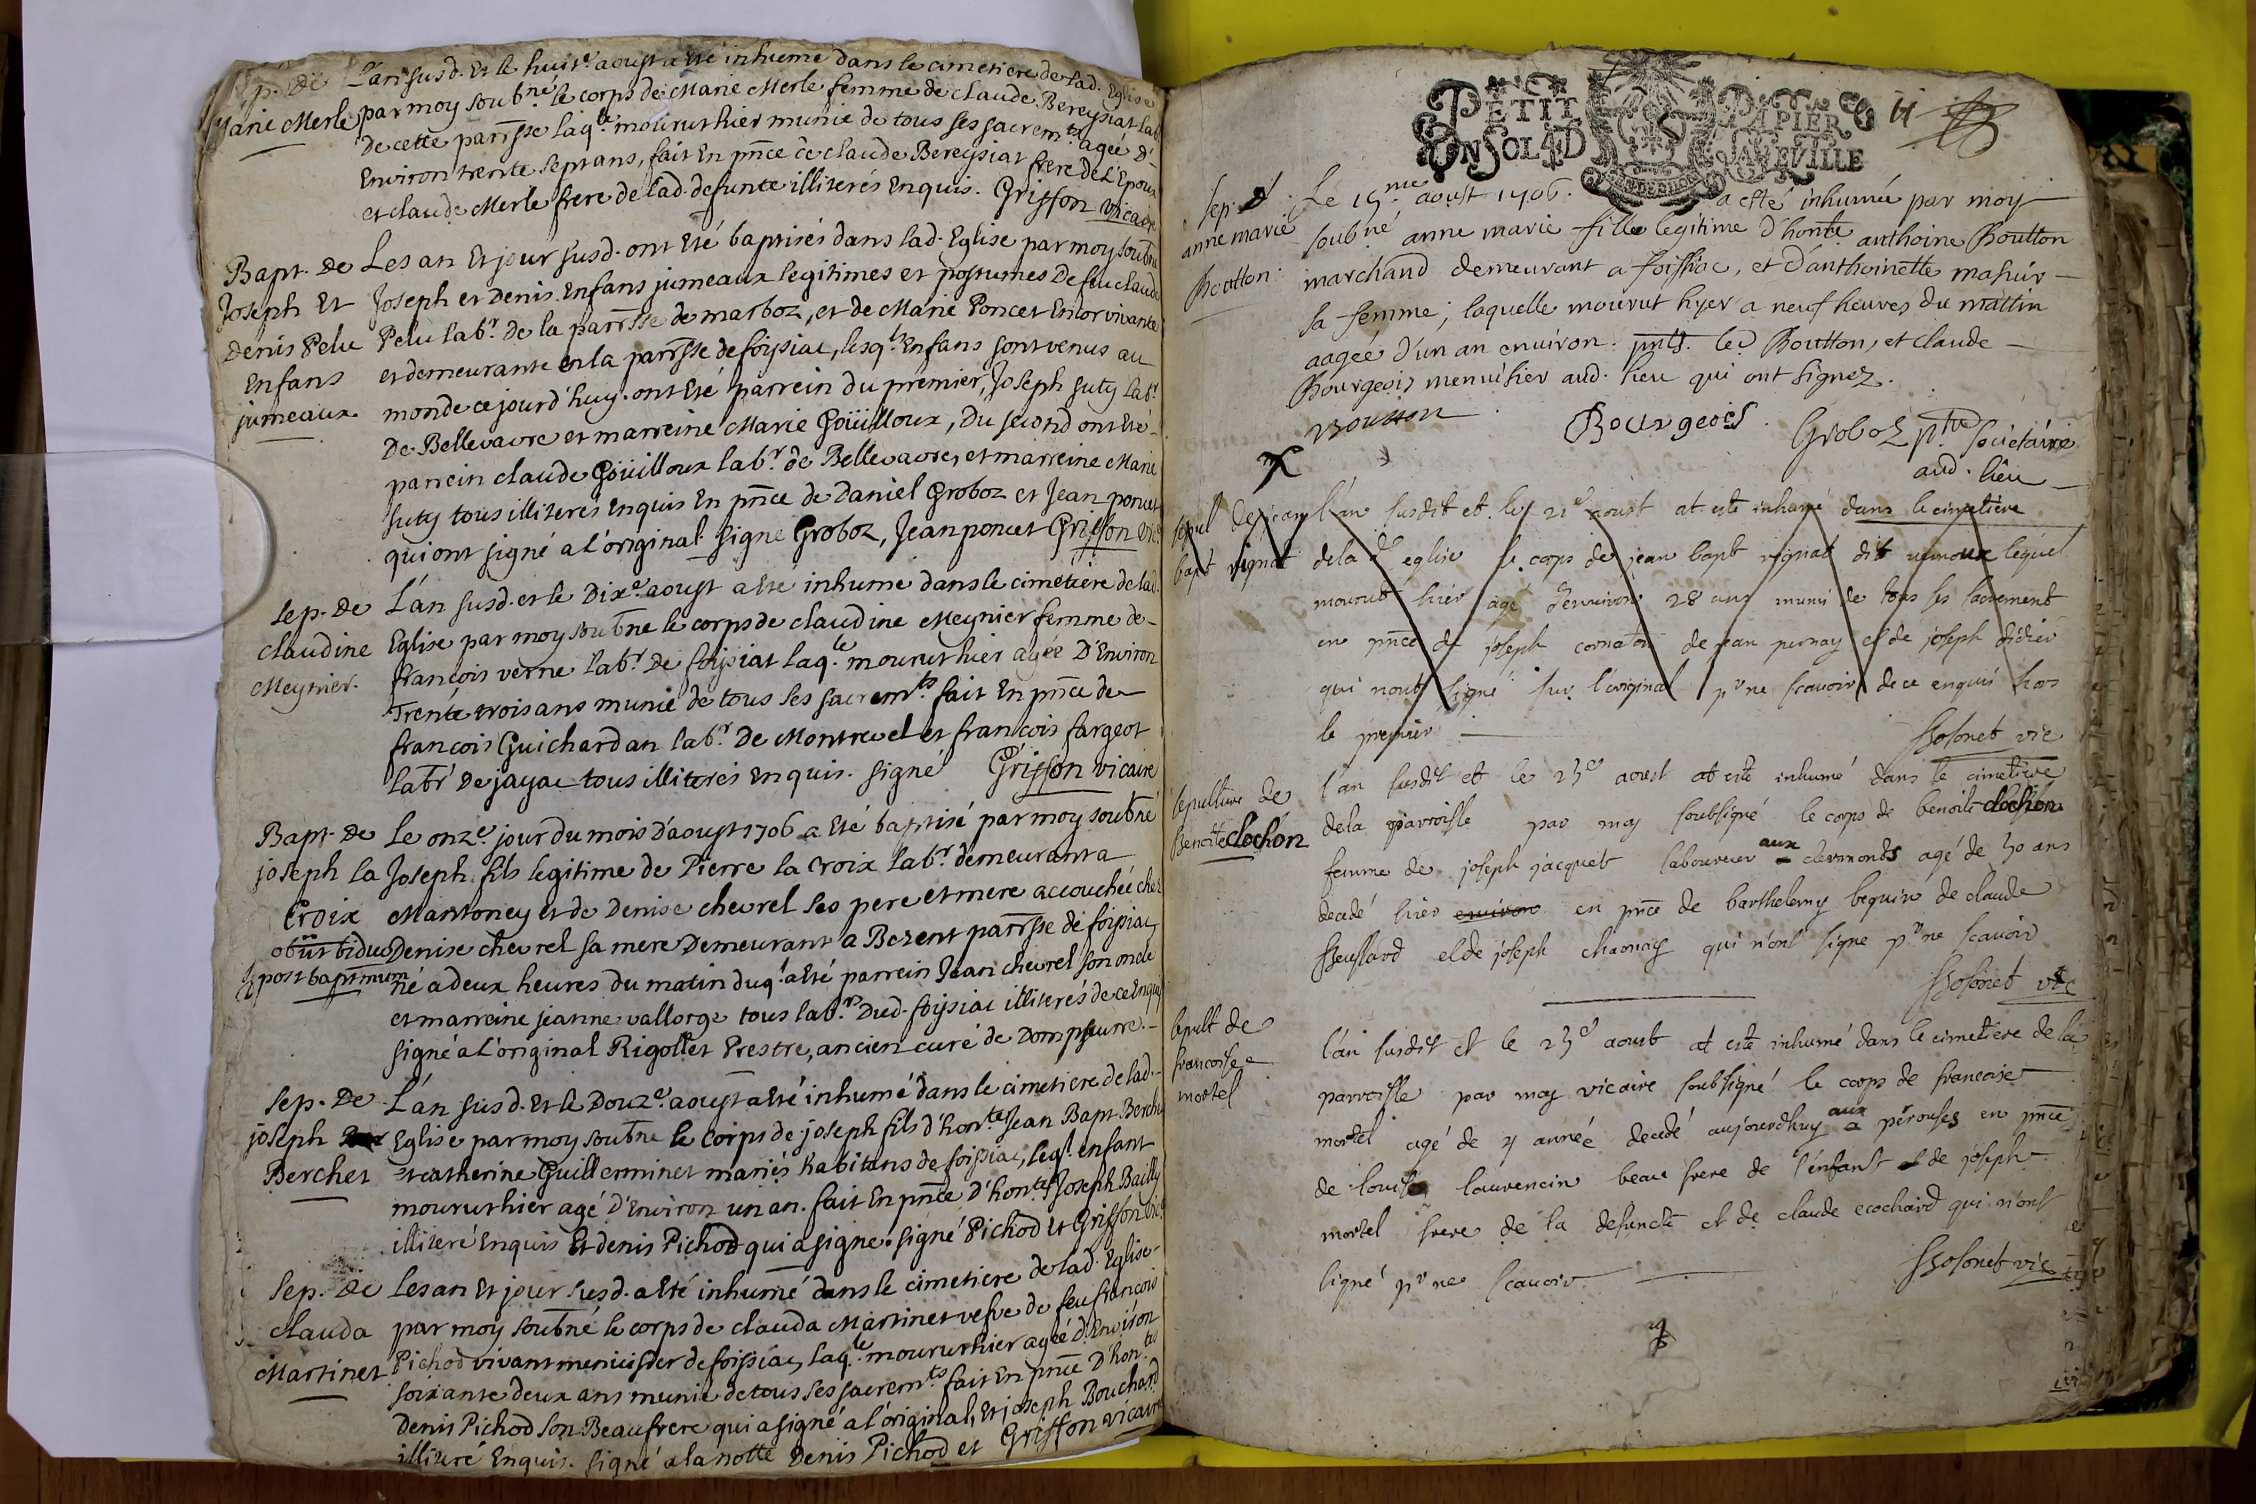 Sep. De
Marie Merle
L'an susd. Et le huit.e aoust a eté inhumé dans le cimetiere de lad. Eglise
par moy soubné le corps de Marie Merle femme de claude Bereysiat lab.
De cette parrsse laq.le mourut hier munie de tous ses sacrem.ts agée d'-
Environ trente sept ans, fait En pnce de claude Bereysiat frere de l'Epoux
et claude Merle frere de lad. defunte illiterés Enquis. Griffon vicaire
Bapt. De
Joseph Et
Denis Pelu
Enfans
jumeaux.
Les an Et jour susd. ont Eté baptisés dans lad. Eglise par moy soubné
Joseph et Denis Enfans jumeaux legitimes et postumes De feu claude
Pelu lab.r de la parrsse de marboz, et de Marie Poncet Encor vivante
et demeurante en la parrsse de foissiac, lesq.ls Enfans sont venus au
monde ce jourd'huy. ont Eté parrein du premier, Joseph suty lab.r
De Bellevavre et marreine Marie Goüilloux, Du second ont Eté-
parrein claude Goüilloux lab.r de Bellevavre, et marreine Marie
suty tous illiterés Enquis En pnce de Daniel Groboz et Jean poncet
qui ont signé a l'original signé Groboz, Jean poncet Griffon vic.
Sep. De
claudine
Meynier.
L'an susd. et le Dix.e aoust a eté inhumé dans le cimetiere de lad.
Eglise par moy soubné le corps de claudine Meynier femme de-
françois verne lab.r De foissiat laq.le mourut hier agée D'Environ
Trente trois ans munie de tous ses sacrem.ts fait En pnce de
françois Guichardan lab.r De Montrevel et françois fargeot
lab.r De jayac tous illiterés Enquis. signé Griffon vicaire
Bapt. De
joseph la
Croix
obiit biduo
post baptmum
Le onz.e jour du mois d'aoust 1706 a eté baptisé par moy soubné
Joseph fils legitime de Pierre la Croix lab.r demeurant a
Mantoney et de Denise chevrel ses pere et mere accouchée chez
Denise chevrel sa mere Demeurant a Bezent parrsse de foissiac,
né a deux heures du matin duq.l a eté parrein Jean chevrel son oncle
et marreine jeanne vallorge tous lab.rs Dud. foissiac illiterés de ce Enquis
signé a l'original Rigollet Prestre, ancien curé de Dompsurre.-
Sep. De
joseph
Berchet
L'an susd. Et le Douz.e aoust a eté inhumé dans le cimetiere de lad.-
Eglise par moy soubné le corps de joseph fils d'hon.te Jean Bapt. Berchet
Et catherine Guillerminet mariés habitans de foissiac, leq.l enfant
mourut hier agé D'Environ un an. fait En pnce d'hon.te Joseph Bailly
illiteré Enquis Et denis Pichod qui a signé. signé Pichod Et Griffon vic.
Sep. De
clauda
Martinet
Les an Et jour susd. a eté inhumé dans le cimetiere de lad. Eglise-
par moy soubné le corps de clauda Martinet vefve de feu françois
Pichod vivant menuisier de foissiac, laq.le mourut hier agée d'Environ
soixante deux ans munie de tous ses sacrem.ts fait En pnce d'hon.te
Denis Pichod son Beaufrere qui a signé a l'original, Et joseph Bouchard
illiteré Enquis. signé a la notte Denis Pichod et Griffon vicaire
PETIT PAPIER
UN SOL 4 D LA FEUILLE
11
Sep. d
anne marie
Boutton.
Le 15.me aoust 1706. a esté inhumée par moy
soubné anne marie fille legitime d'honte anthoine Boutton
marchand demeurant a foissiac, et d'anthoinette masuir-
sa femme; laquelle mourut hyer a neuf heures du mattin
aagée d'un an environ. pnts. led Boutton, et claude-
Bourgeois menuisier aud. lieu qui ont signez.
Boutton Bourgeois Groboz ptre societaire
aud. lieu
sepul de jean
bapt vignat
l'an susdit et le 21e aoust at esté inhumé dans le cimetière
dela de eglise le corps de jean bapt vignat dit lequel
mourut hier agé d'environ 28 ans muni de tous ses sacrement
en pnce de joseph de jean pernay et de joseph didier
qui nont signé sur l'original pr ne scavoir de ce enquis hors
le premier
vic
sepulture de
benoite clochon
l'an susdit et le 23e aoust at esté inhumé dans le cimetiere
dela parroisse par moy soubsigné le corps de benoite clochon
femme de joseph jacquet laboureur aux clermonds agé de 50 ans
decedé hier environ en pnce de barthelemy bequin de claude
et de joseph chaonay qui n'ont signe pr ne scavoir
vic
sepult de
francoise
mortel
l'an susdit et le 23e aoust at esté inhumé dans le cimetiere de la
parroisse par moy vicaire soubsigné le corps de francoise
mortel agé de 4 année decedé aujourdhuy aux perouses en pnce
de louis laurencin beau frere de l'enfant et de joseph
mortel frere de la defuncte et de claude ecochard qui n'ont
signé pr ne scavoir
vic